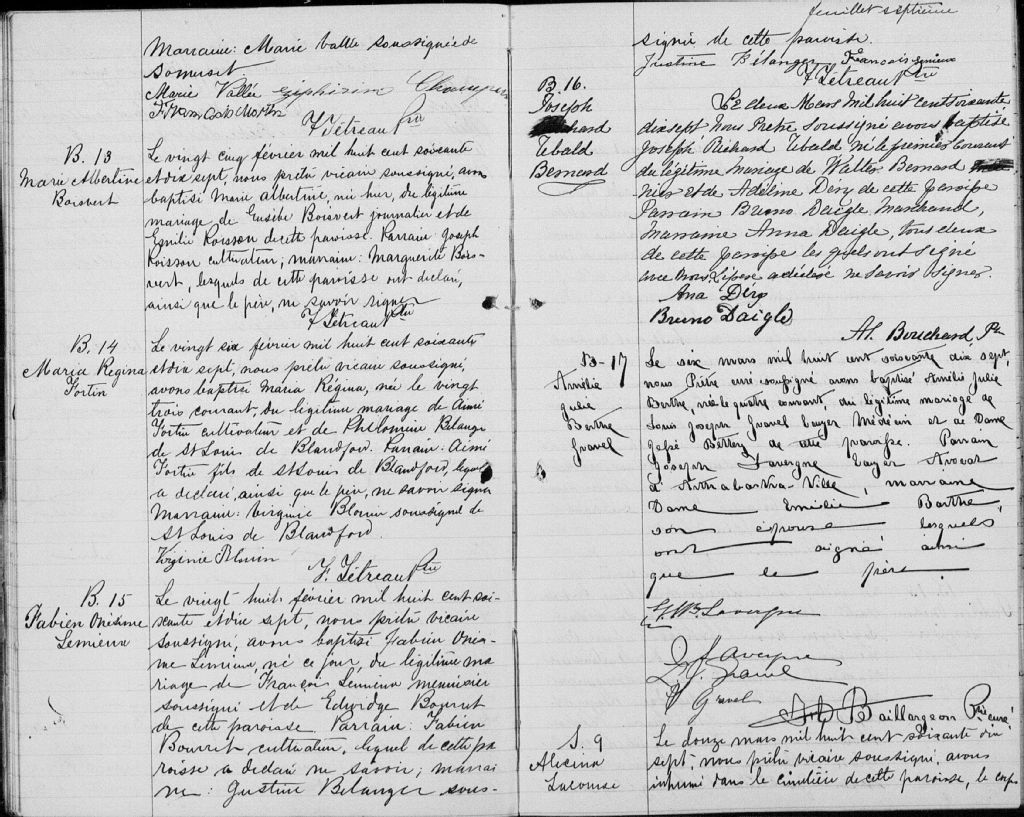 Marraine: Marie Vallée soussignée de
Somerset
Marie Vallée Zéphirin
F. Tétreau Ptre
B. 13
Marie Albertine
Boisvert
Le vingt cinq février mil huit cent soixante
et dix sept, nous prêtre vicaire soussigné, avons
baptisé Marie Albertine, née hier, du légitime
mariage de Eusèbe Boisvert journalier et de
Emilie Poisson de cette paroisse. Parrain: Joseph
Poisson cultivateur; marraine: Marguerite Bois-
vert, lesquels de cette paroisse ont déclaré,
ainsi que le père, ne savoir signer
F. Tétreau Ptre
B. 14
Maria Regina
Fortin
Le vingt six février mil huit cent soixante
et dix sept, nous prêtre vicaire soussigné,
avons baptisé Maria Régina, née le vingt
trois courant, du légitime mariage de Aimé
Fortin cultivateur et de Philomine Bélanger
de St Louis de Blandford. Parrain: Aimé
Fortin fils de St Louis de Blandford, lequel
a déclaré, ainsi que le père, ne savoir signer
Marraine: Virginie Blouin soussignée de
St Louis de Blandford.
Virginie Blouin
F. Tétreau Ptre
B. 15
Fabien Onésime
Lemieux
Le vingt huit février mil huit cent soi-
xante et dix sept, nous prêtre vicaire
soussigné, avons baptisé Fabien Onési-
me Lemieux, né ce jour, du légitime ma
riage de François Lemieux menuisier
soussigné et de Edwidge Bourret
de cette paroisse Parrain: Fabien
Bourret cultivateur, lequel de cette pa
roisse a déclaré ne savoir; marrai
ne: Justine Bélanger sous-
feuillet septième
signée de cette paroisse.
Justine Bélanger François Lemieux
F. Tétreau Ptre
B 16.
Joseph
Richard
Tebald
Bernard
Le deux Mars Mil huit cent soixante
dix sept Nous Pretre soussigné avons baptisé
Joseph Richard Tebald né le premier courant
du légitime Mariage de Walter Bernard
et de Adéline Déry de cette Paroisse
Parrain Bruno Daigle, Marchand,
Marraine Anna Daigle, tous deux
de cette Paroisse les quels ont signé
avec Nous. Le père a déclaré ne savoir signer.
Ana Déry
Bruno Daigle
At. Bouchard, Ptre
B-17
Amélie
Julie
Berthe
Gravel
Le six mars mil huit cent soixante dix sept,
nous Prêtre curé soussigné avons baptisé Amélie Julie
Berthe, née le quatre courant, du légitime mariage de
Louis Joseph Gravel Ecuyer Médecin et de Dame
Bettery de cette paroisse. Parrain
Joseph Lavergne Ecuyer Avocat
d'Arthabaska-Ville, marraine
Dame Emilie Barthe,
son épouse, lesquels
ont signé ainsi
que le père
Lavergne
J. Lavergne
L. J. Gravel
Gravel
Baillargeon Ptre curé
S. 9
Alexina
Lacourse
Le douze mars mil huit cent soixante dix
sept, nous prêtre vicaire soussigné, avons
inhumé dans le cimetière de cette paroisse, le corps